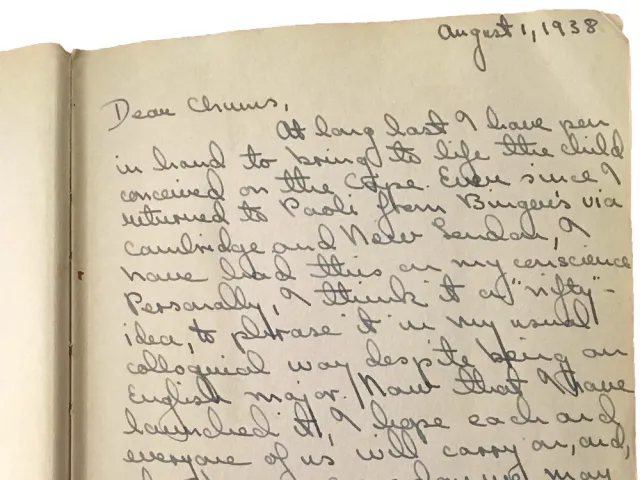 August 1, 1938
Dear Chums,
At long last I have pen
in hand to bring to life the child
conceived on the Cape. Ever since I
returned to Paoli from Binger's via
Cambridge and New London, I
have had this on my conscience
Personally, I think it a "nifty"
idea, to phrase it in my usual
colloquial way despite being an
English major. Now that I have
launched it, I hope each and
everyone of us will carry on, and,
may